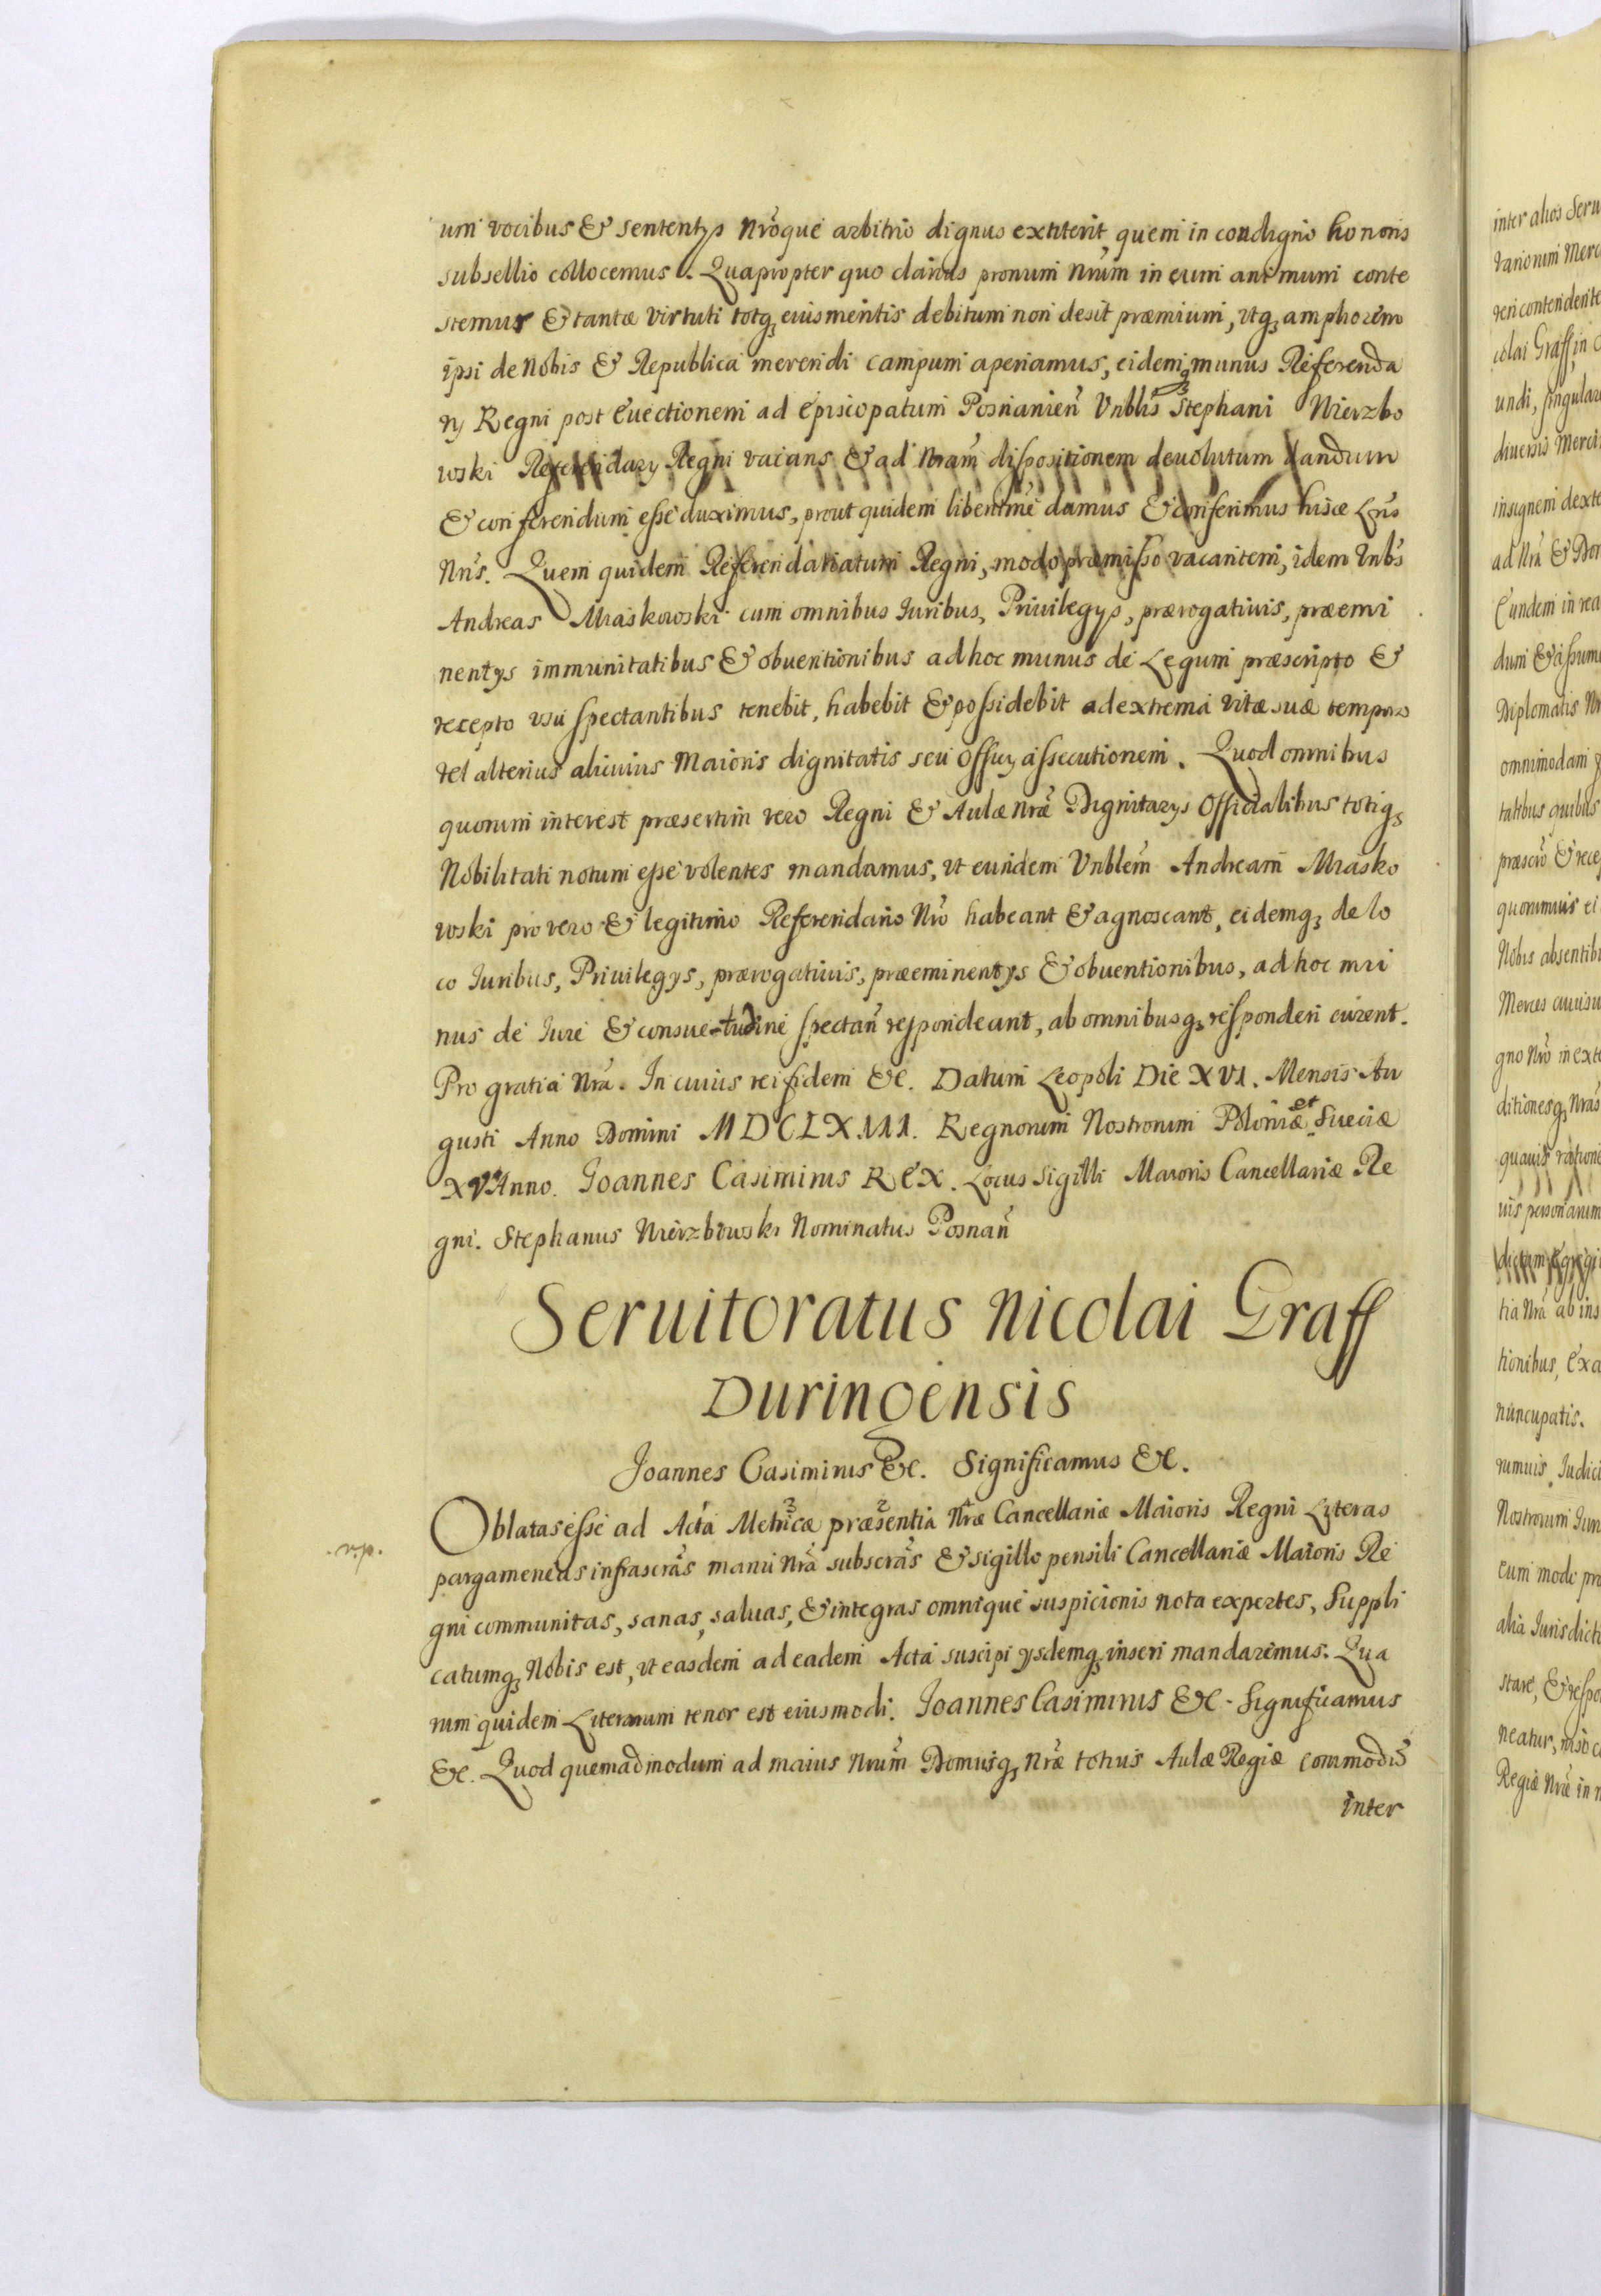 um vocibus & sententys nr̃oque arbitrio dignus extiterit, quem in condigno honoris
subsellio collocemus. Quapropter quo clarius pronum nrũm in eum animum conte
stemur & tantæ virtuti totq; eius meritis debitum non desit præmium, vtq; ampliorem
ipsi de Nobis & Republica merendi campum aperiamus, eidemq; munus Referenda
ry Regni post Euectionem ad Episcopatum Posnanien̄ Vrblis Stephani Wierzbo
wski Referendary Regni vacans & ad nrãm dispositionem deuolutum dandum
& conferendum esse duximus, prout quidem liberrime damus & conferimus hisce Lrĩs
Nrĩs. Quem quidem Referendariatum Regni, modo præmisso vacantem, idem Vnbs
Andreas Miaskowski cum omnibus Iuribus, Priuilegys, prærogatiuis, præemi
nentys immunitatibus & obuentionibus ad hoc munus de Legum præscripto &
recepto vsu spectantibus tenebit, habebit & possidebit ad extrema vitæ suæ tempora
vel alterius alicuius Maioris dignitatis seu Officy assecutionem. Quod omnibus
quorum interest præsertim vero Regni & Aulæ nræ̃ Dignitarys Officialibus totiq;
Nobilitati notum esse volentes mandamus, vt eundem Vnblẽm Andream Miasko
wski pro vero & legitimo Referendario Nrõ habeant & agnoscant, eidemq; de lo
co Iuribus, Priuilegys, prærogatiuis, præeminentys & obuentionibus, ad hoc mu
nus de Iure & consuetudine spectañ respondeant, ab omnibusq; responderi curent.
Pro gratia Nrã. In cuius rei fidem &c. Datum Leopoli Die XVI. Mensis Au
gusti Anno Domini MDCLXIII. Regnorum Nostrorum Poloniæ et Sueciæ
XV Anno. Joannes Casimirus REX. Locus Sigilli Maioris Cancellariæ Re
gni. Stephanus Wierzbowski Nominatus Posnañ
Seruitoratus Nicolai Graff
Duringensis
Joannes Casimirus &c. Significamus &c.
Oblatas esse ad Acta Metricæ præsentia Nræ Cancellariæ Maioris Regni Literas
.v.p.
pargameneas infrascrãs manu nrã subscrãs & sigillo pensili Cancellariæ Maioris Re
gni communitas, sanas, saluas, & integras omnique suspicionis nota expertes, Suppli
catumq; Nobis est, vt easdem ad eadem Acta suscipi ysdemq; inseri mandaremus. Qua
rum quidem Literarum tenor est eiusmodi. Joannes Casimirus &c. Significamus
&c. Quod quemadmodum ad maius nrũm Domusq; nræ̃ totius Aulæ Regiæ commodũ
inter
inter alios Seru
variorum Merc
ren contendente
colai Graff, in
undi, singular
diuersis Merci
insignem dexte
ad Nrã & Do
Eundem in rea
dum & assum
Diplomatis Nr
omnimodam
tatibus quibus
præscrõ & rece
quominus ei
Nobis absentib
Merces cuiusu
gno Nrõ in exte
ditionesq; Nrãs
quauis ratione
uis personarum
dictum Egregi
tia Nrã ab ins
tionibus, Exa
nuncupatis.
rumuis Iudici
Nostrorum Iur
cum modo pr
alia Iurisdict
stare, & respo
neatur, nisi c
Regiæ Nræ̃ in